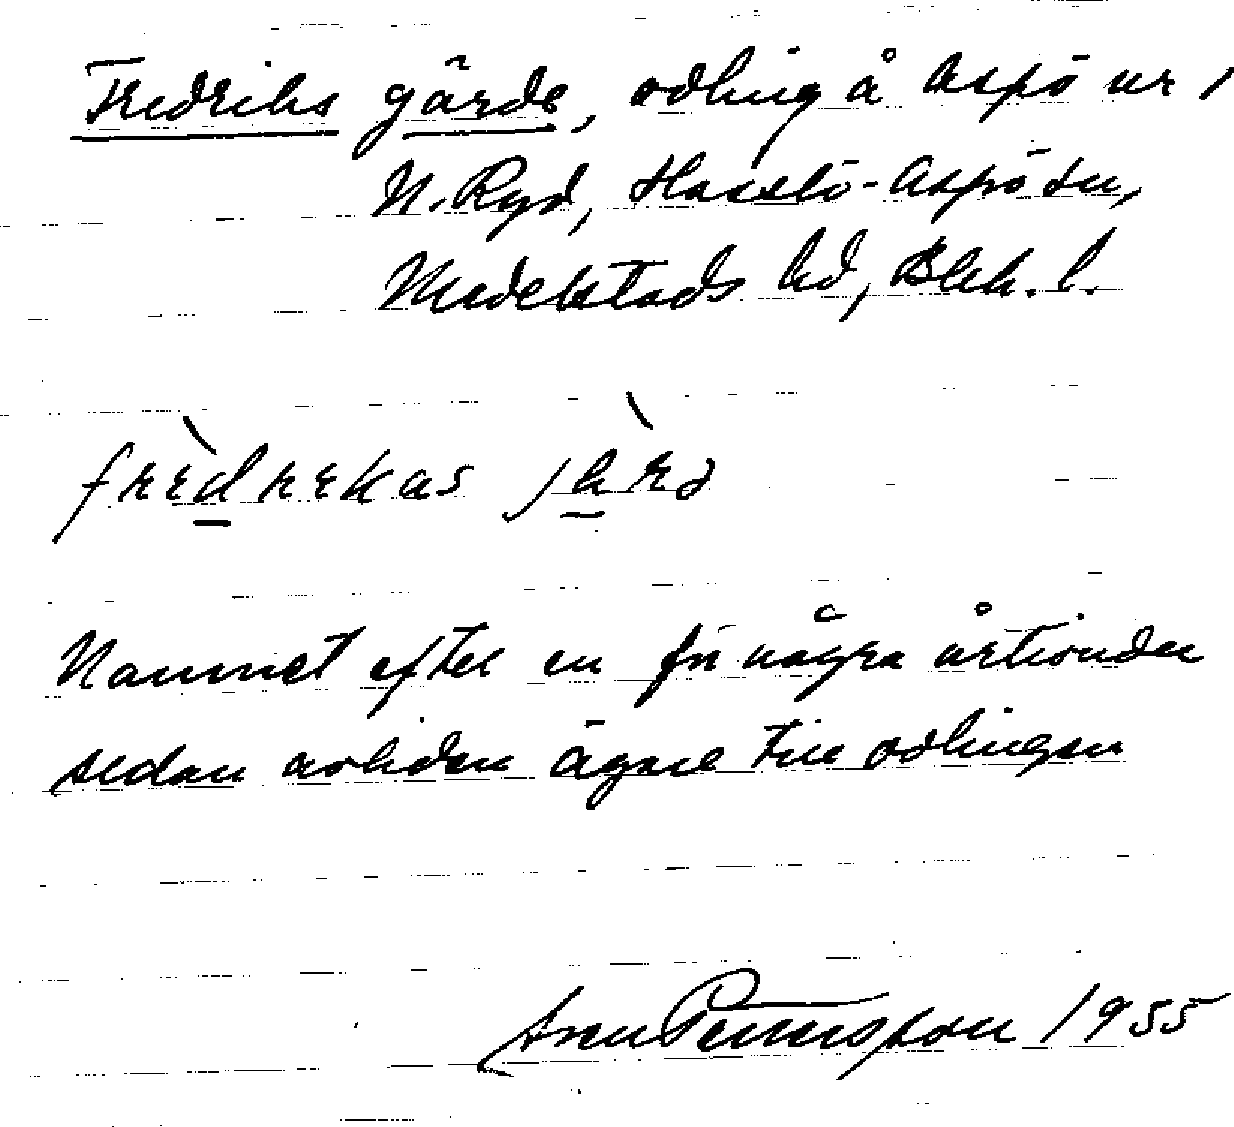 Fredriks gärde, odling å Aspö nr 1
N. Ryd, Hasslö-Aspö sn,
Medelstads hd, Blek. l.
frèdrekas jàrə
Namnet efter en för några årtionden
sedan avliden ägare till odlingen
Sven Pettersson 1955